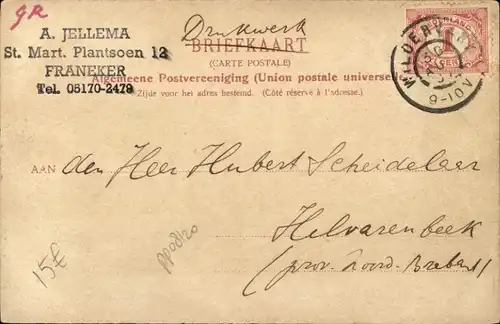 gR
A. JELLEMA
St. Mart. Plantsoen 12
FRANEKER
Tel. 05170-2479
Drukwerk
BRIEFKAART
(CARTE POSTALE)
Algemeene Postvereeniging (Union postale universe
Zijde voor het adres bestemd. (Côté réservé à l'adresse.)
9-10V
AAN den Heer Hubert Scheidelaar
Helvarenbeek
(prov. Noord. Brabant)
15£